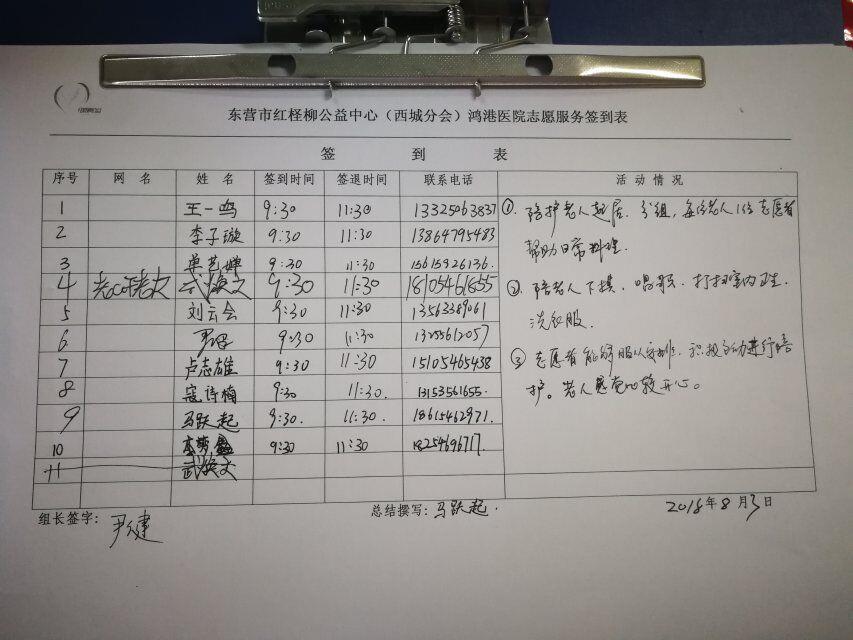 东营市红柽柳公益中心（西城分会）鸿港医院志愿服务签到表
签 到 表
序号 网 名 姓 名 签到时间 签退时间 联系电话 活 动 情 况
1 王一鸣 9:30 11:30 13325063837
2 李子璇 9:30 11:30 13864795483
3 9:30 11:30 15615926136.
4 武焕文 9:30 11:30 18105461855
5 刘云会 9:30 11:30 13563389061
6 9:30 11:30 13255612057
7 卢志雄 9:30 11:30 15105465438
8 寇诗楠 9:30 11:30. 13153561655.
9 马跃起 9:30. 11:30. 18615462971.
10 9:30 11:30 18254696717.
11 武焕文
①. 陪护老人起居. 分组, 每位老人1位志愿者
帮助日常料理.
②. 陪老人下棋. 唱歌. 打扫室内卫生.
洗衣服.
③. 志愿者能够服从安排. 积极主动进行陪
护。老人感觉比较开心。
组长签字: 尹建
总结撰写: 马跃起.
2018年8月3日